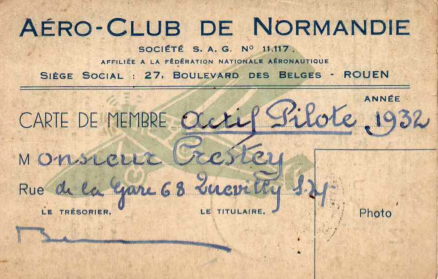 AÉRO-CLUB DE NORMANDIE
SOCIÉTÉ S. A. G. Nº 11.117.
AFFILIÉE A LA FÉDÉRATION NATIONALE AÉRONAUTIQUE
SIÈGE SOCIAL : 27, BOULEVARD DES BELGES - ROUEN
ANNÉE
CARTE DE MEMBRE actif Pilote 1932
Monsieur Crestey
Rue de la Gare 68 Quevilly
LE TRÉSORIER, LE TITULAIRE, Photo